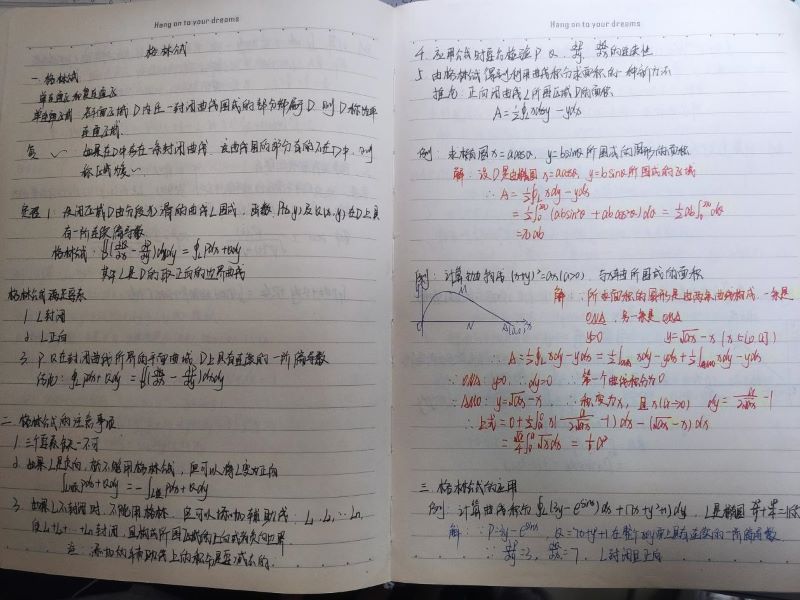 Hang on to your dreams
格林公式
一. 格林公式
单连通区和复连通区
单连通区域 若平面区域D内任一封闭曲线围成的部分都属于D 则D称为单
连通区域.
复 如果在D中存在一条封闭曲线. 该曲线围的部分有的不在D中, 则
称区域
定理1: 设闭区域D由分段光滑的曲线L围成, 函数P(x,y)及Q(x,y)在D上具
有一阶连续偏导数
格林公式: ∬(∂Q/∂x - ∂P/∂y)dxdy = ∮L Pdx+Qdy
其中L是D的取正向的边界曲线
格林公式满足要素
1. L封闭
2. L正向
3. P Q在封闭曲线所界的平面 D上具有连续的一阶偏导数
∮L Pdx+Qdy = ∬(∂Q/∂x - ∂P/∂y)dxdy
二. 格林公式的注意事项
1. 三个要素缺一不可
2. 如果L是反向, 格林公式, 但可以将L变为正向
Pdx+Qdy = -∫ Pdx+Qdy
3. 如果L不封闭时, 不能用格林, 但可以添加辅助线: L₁, L₂ ... Ln,
使L+L₁+ ... +Ln封闭, 且
注: 添加的辅助线上的积分是要减去的.
Hang on to your dreams
4. 应用公式时要先检验P Q ∂P/∂y ∂Q/∂x的连续性
5. 由格林公式得到利用曲线积分求面积的一种新方法
推论: 正向闭曲线L所围区域D的面积
A = ½∮L xdy - ydx
例: 求椭圆x=acosθ, y=bsinθ所围成的图形的面积
解: 设D是由椭圆x=acosθ, y=bsinθ所围成的区域
∴ A = ½∮L xdy - ydx
= ½∫₀^2π (absin²θ + abcos²θ)dθ = ½ab∫₀^2π dθ
= πab
例: 计算抛物线(x+y)²=ax(a>0), 与x轴所围成的面积
M
O N A(a,0) x
解: 所求面积的图形是由两条曲线构成, 一条是
ONA, 另一条是
y=0 y=√ax - x
∴ A = ½∮L xdy - ydx = ½∫ xdy - ydx + ½∫ xdy - ydx
∵ ONA: y=0, dy=0 ∴ 第一个曲线积分为0
∵ AMO: y=√ax - x ∴ 积分变为x, 且x(a→0) dy = a/2√ax - 1
∴ 上式 = 0 + ½∫ x(a/2√ax - 1)dx - (√ax - x)dx
= √a/4 ∫ √x dx = 1/6 a²
三. 格林公式的应用
例: 计算曲线积分∮L(3y - e^sinx)dx + (7x + y²+1)dy, L是椭圆
解: ∵ P=3y - e^sinx, 在整个xoy面上具有连续的一阶偏导数
∂P/∂y = 3, ∂Q/∂x = 7, L封闭且正向